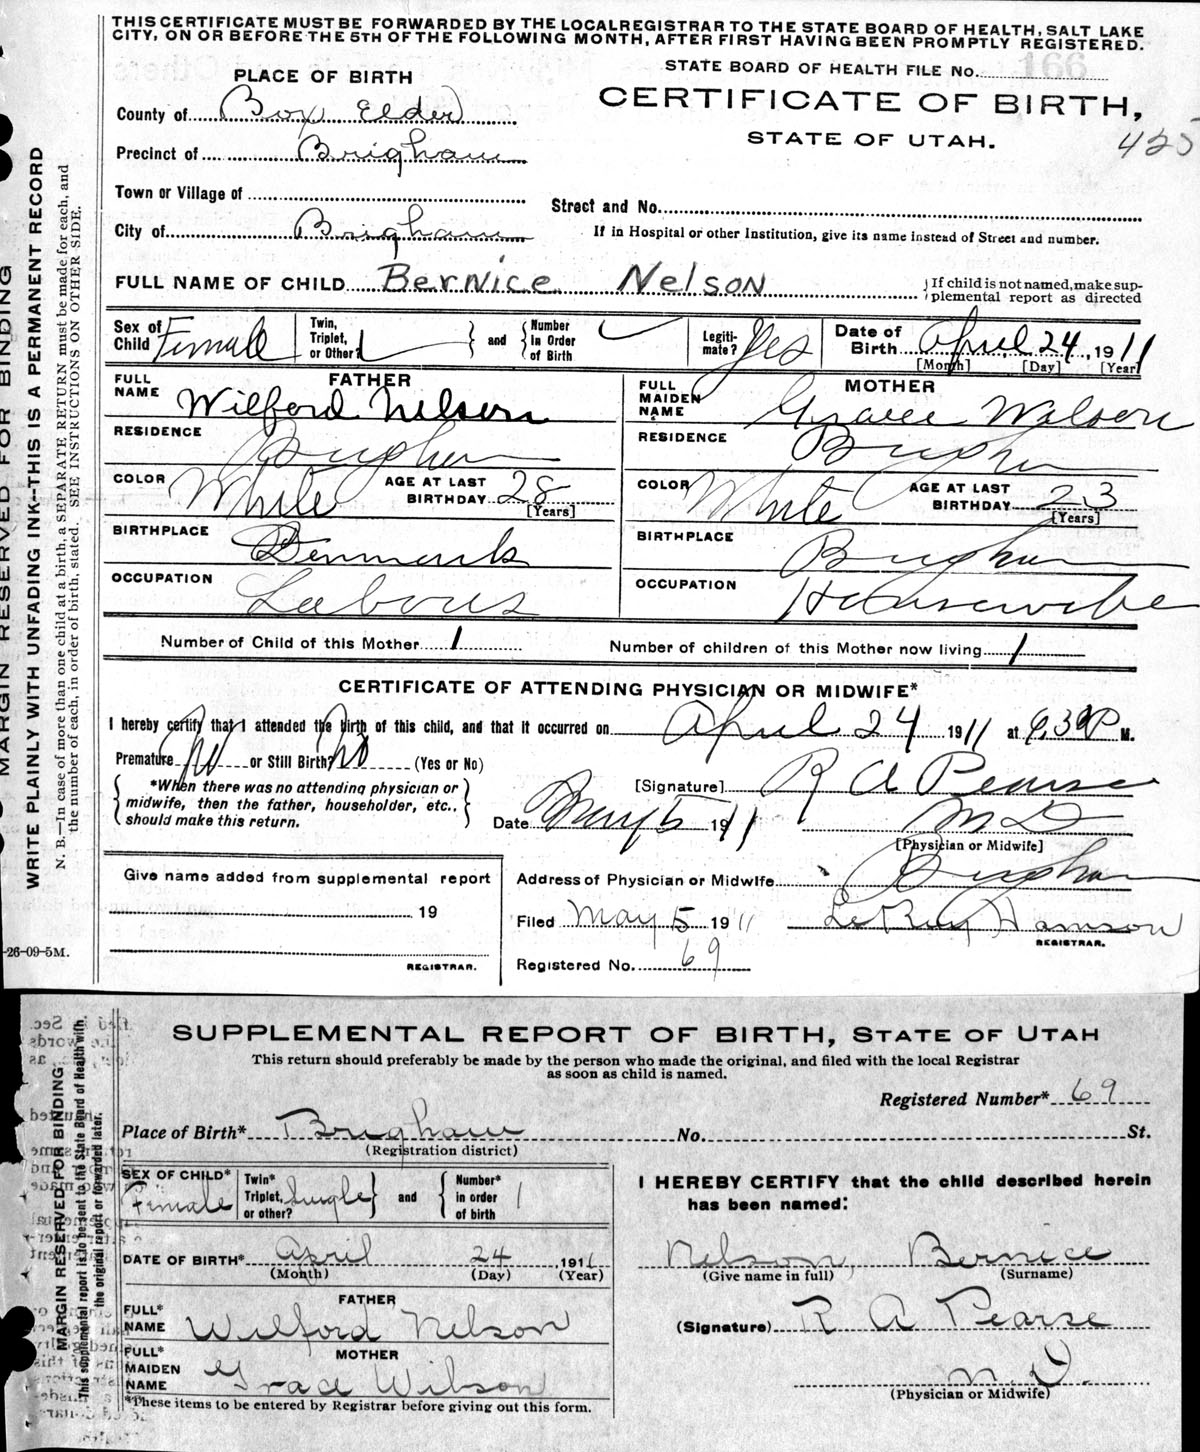 THIS CERTIFICATE MUST BE FORWARDED BY THE LOCAL REGISTRAR TO THE STATE BOARD OF HEALTH, SALT LAKE
CITY, ON OR BEFORE THE 5TH OF THE FOLLOWING MONTH, AFTER FIRST HAVING BEEN PROMPTLY REGISTERED.
PLACE OF BIRTH
STATE BOARD OF HEALTH FILE No. 166
CERTIFICATE OF BIRTH,
STATE OF UTAH.
425
County of Box Elder
Precinct of Brigham
Town or Village of
Street and No.
City of Brigham
If in Hospital or other Institution, give its name instead of Street and number.
FULL NAME OF CHILD Bernice Nelson
} If child is not named, make sup-
plemental report as directed
Sex of Child Female
Twin, Triplet, or Other? 1
and
Number in Order of Birth
Legiti-mate? Yes
Date of Birth April 24, 1911
[Month] [Day] [Year]
FATHER
FULL NAME Wilford Nelson
RESIDENCE Brigham
COLOR White
AGE AT LAST BIRTHDAY 28 [Years]
BIRTHPLACE Denmark
OCCUPATION
MOTHER
FULL MAIDEN NAME Grace Wilson
RESIDENCE Brigham
COLOR White
AGE AT LAST BIRTHDAY 23 [Years]
BIRTHPLACE Brigham
OCCUPATION Housewife
Number of Child of this Mother 1
Number of children of this Mother now living 1
CERTIFICATE OF ATTENDING PHYSICIAN OR MIDWIFE*
I hereby certify that I attended the birth of this child, and that it occurred on April 24 1911 at P M.
Premature No or Still Birth? No (Yes or No)
*When there was no attending physician or
midwife, then the father, householder, etc.,
should make this return.
[Signature] R A Pearse
Date May 5 1911
M D
[Physician or Midwife]
Give name added from supplemental report
19
REGISTRAR.
Address of Physician or Midwife Brigham
Filed May 5 1911
REGISTRAR.
Registered No. 69
-26-09-5M.
MARGIN RESERVED FOR BINDING
WRITE PLAINLY WITH UNFADING INK--THIS IS A PERMANENT RECORD
N. B.—In case of more than one child at a birth, a SEPARATE RETURN must be made for each, and
the number of each, in order of birth, stated. SEE INSTRUCTIONS ON OTHER SIDE.
SUPPLEMENTAL REPORT OF BIRTH, STATE OF UTAH
This return should preferably be made by the person who made the original, and filed with the local Registrar
as soon as child is named.
Registered Number* 69
Place of Birth* Brigham No. St.
(Registration district)
SEX OF CHILD* Female
Twin* Triplet, or other? Single
and
Number* in order of birth 1
DATE OF BIRTH* April 24, 1911
(Month) (Day) (Year)
FATHER
FULL* NAME Wilford Nelson
MOTHER
FULL* MAIDEN NAME Grace Wilson
*These items to be entered by Registrar before giving out this form.
I HEREBY CERTIFY that the child described herein
has been named:
Nelson, Bernice
(Give name in full) (Surname)
(Signature) R A Pearse
M. D.
(Physician or Midwife)
MARGIN RESERVED FOR BINDING
This supplemental report is to be sent to the State Board of Health with
the original report or forwarded later.